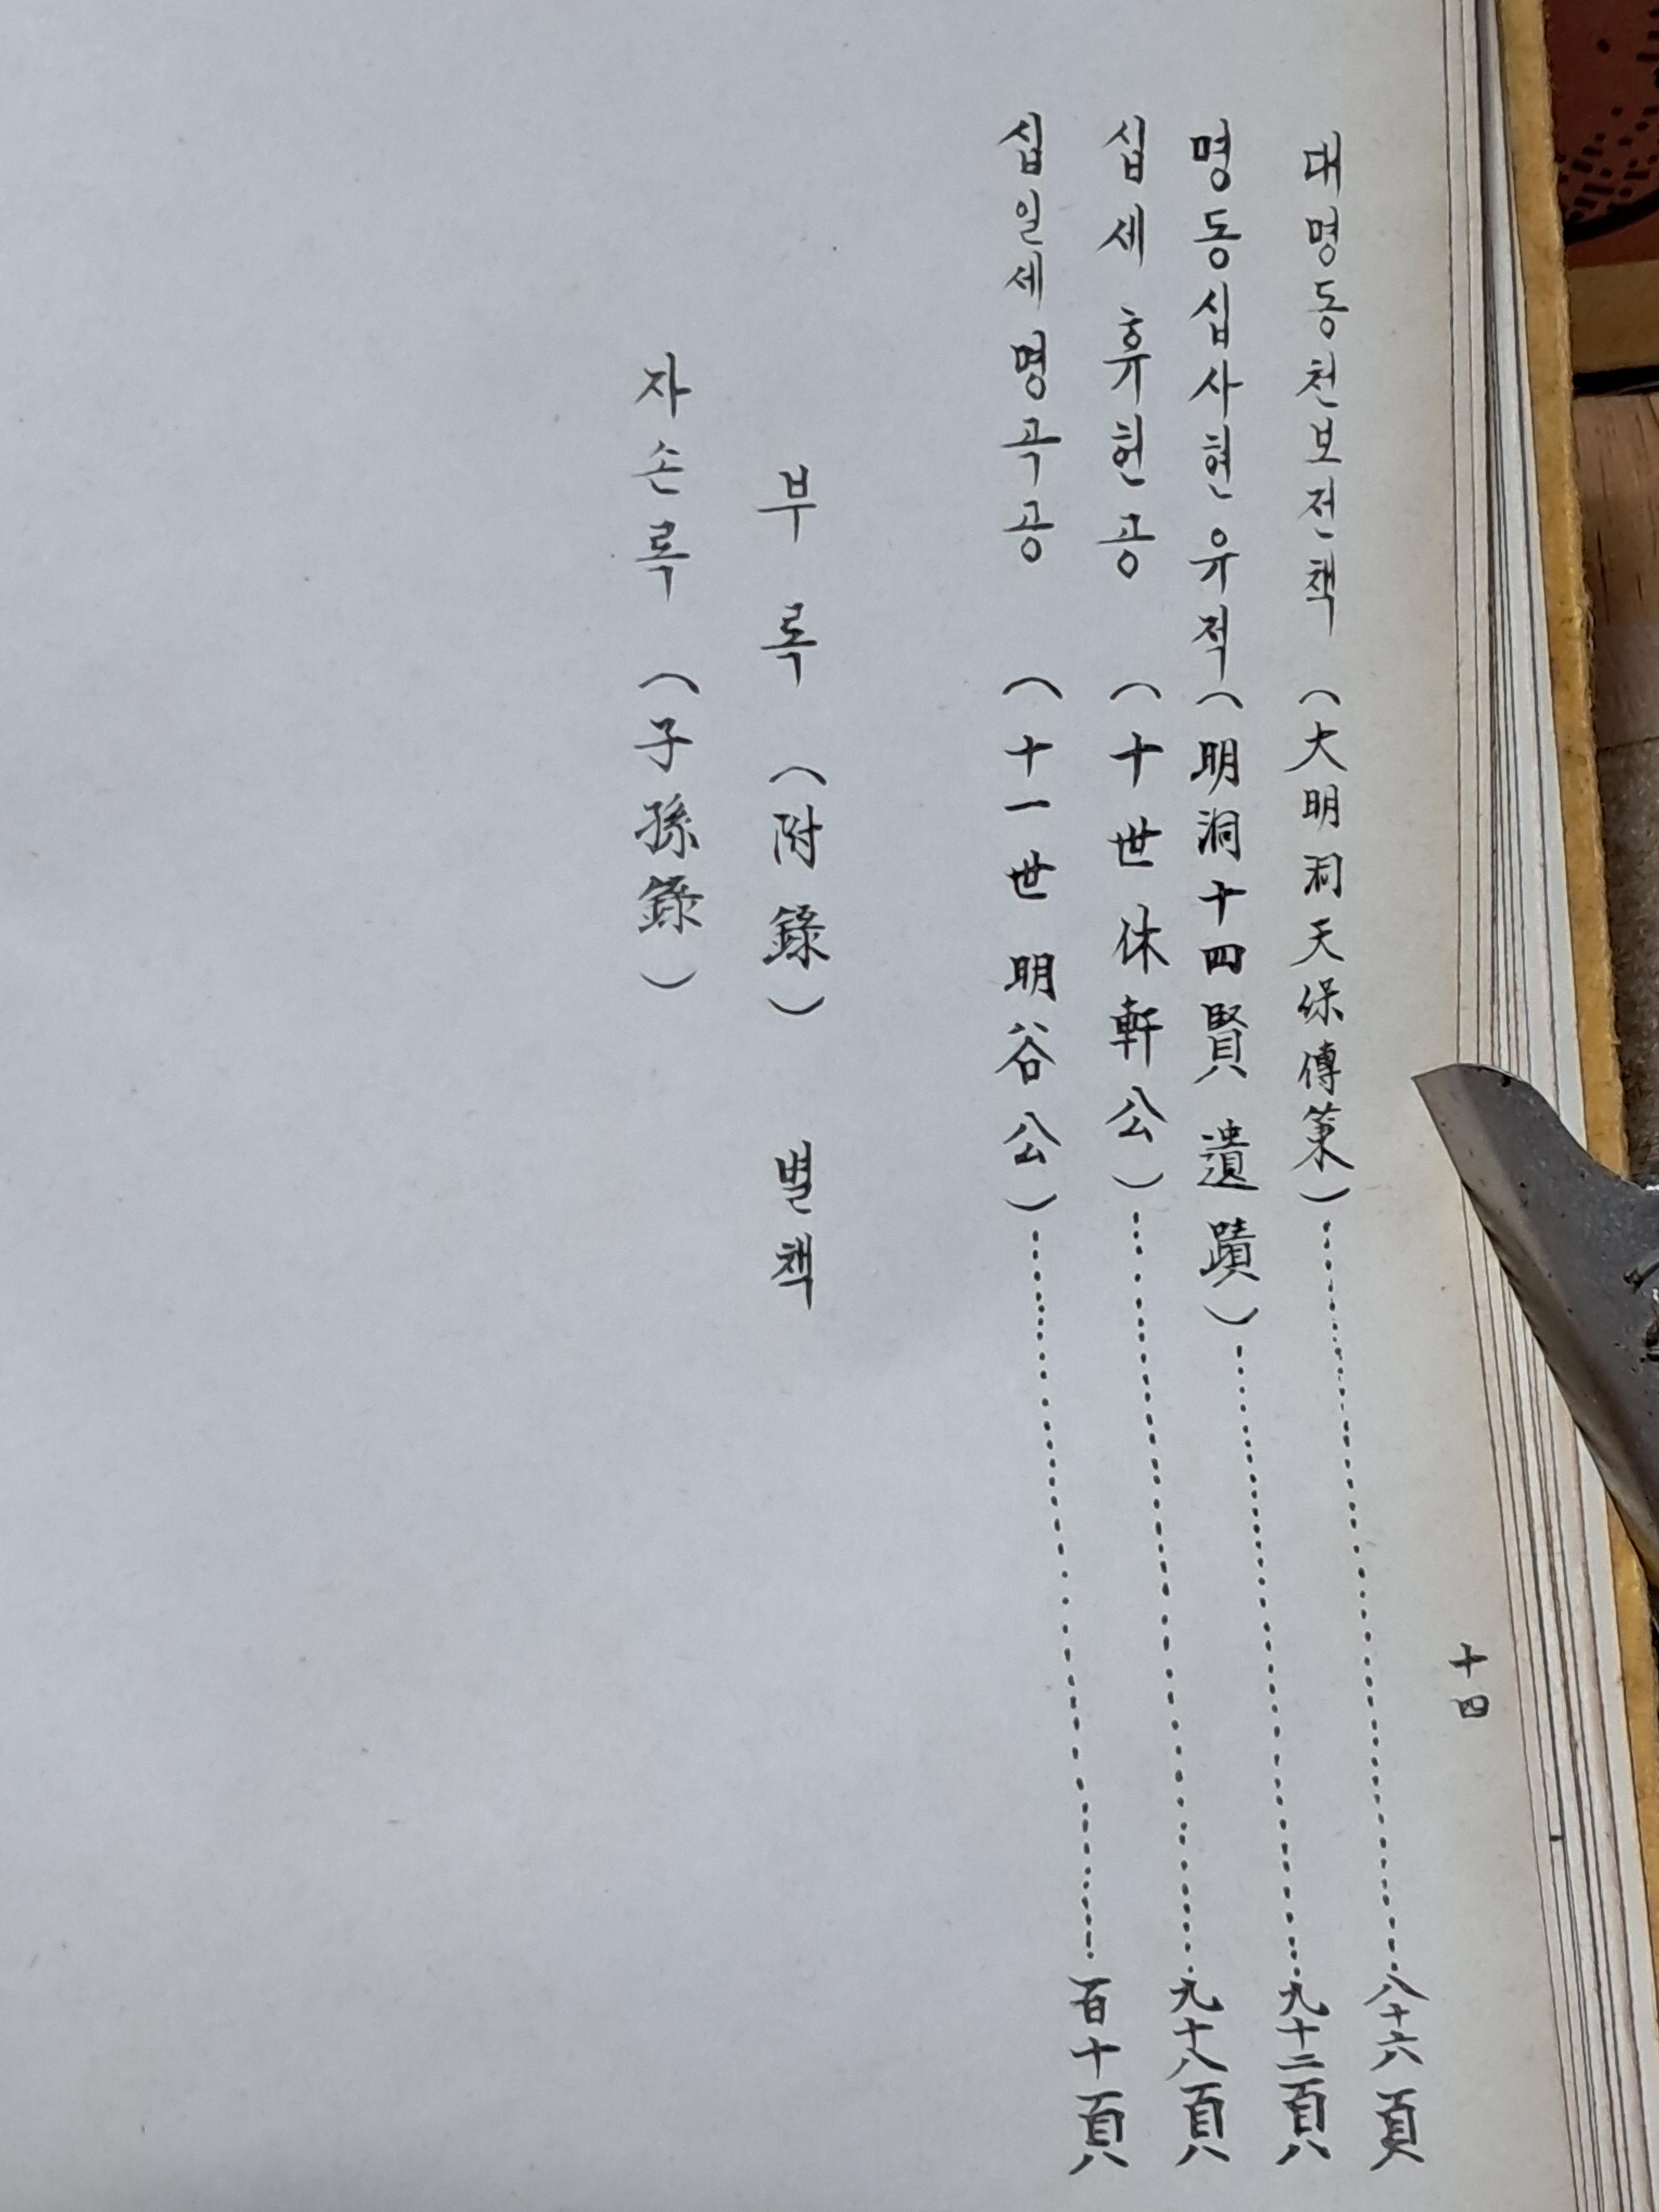 대명동천보전책 (大明洞天保傳策)……八十六頁
명동십사현유적 (明洞十四賢遺蹟)……九十二頁
십세 휴헌공 (十世休軒公)……九十八頁
십일세 명곡공 (十一世明谷公)……百十頁
부록 (附錄) 별책
자손록 (子孫錄)
十四